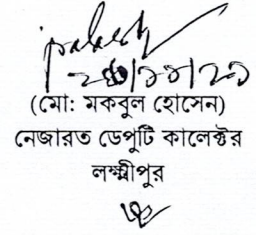 (মো: মকবুল হোসেন)
নেজারত ডেপুটি কালেক্টর
লক্ষ্মীপুর